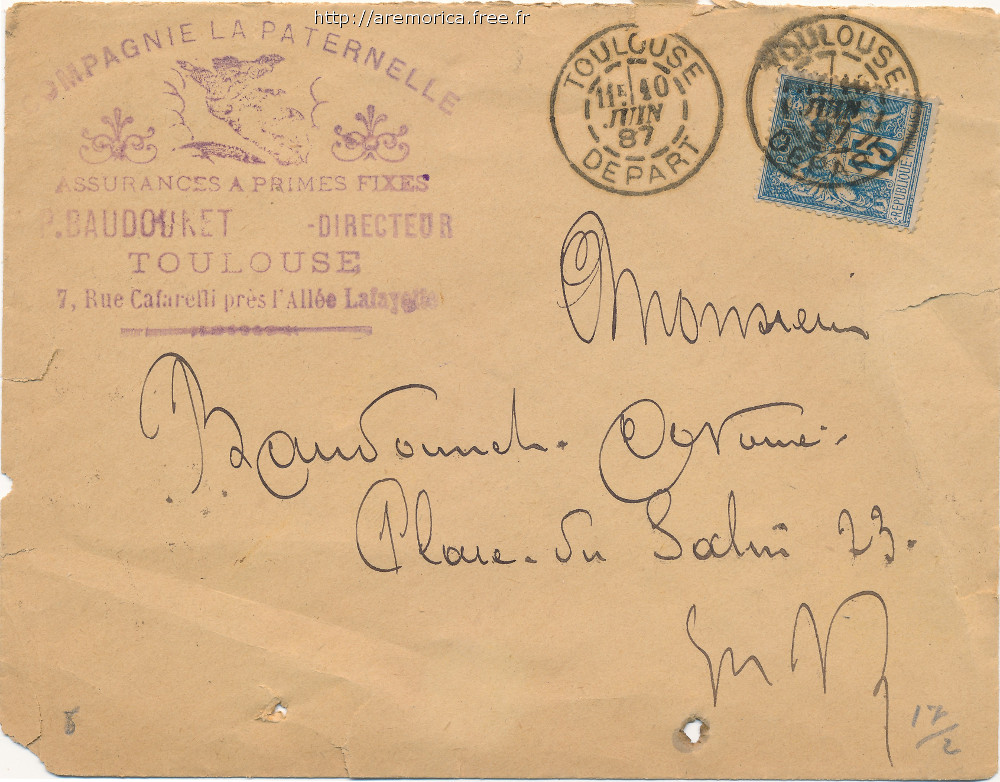 http://aremorica.free.fr
COMPAGNIE LA PATERNELLE
ASSURANCES A PRIMES FIXES
P. BAUDOURET -DIRECTEUR
TOULOUSE
7, Rue Cafarelli près l'Allée Lafayette
TOULOUSE
11E 40
JUIN
87
DEPART
TOULOUSE
JUIN
87
DEPART
15
RÉPUBLIQUE FRANÇAISE
Monsieur
Place du Salin 23.
En V
17/2